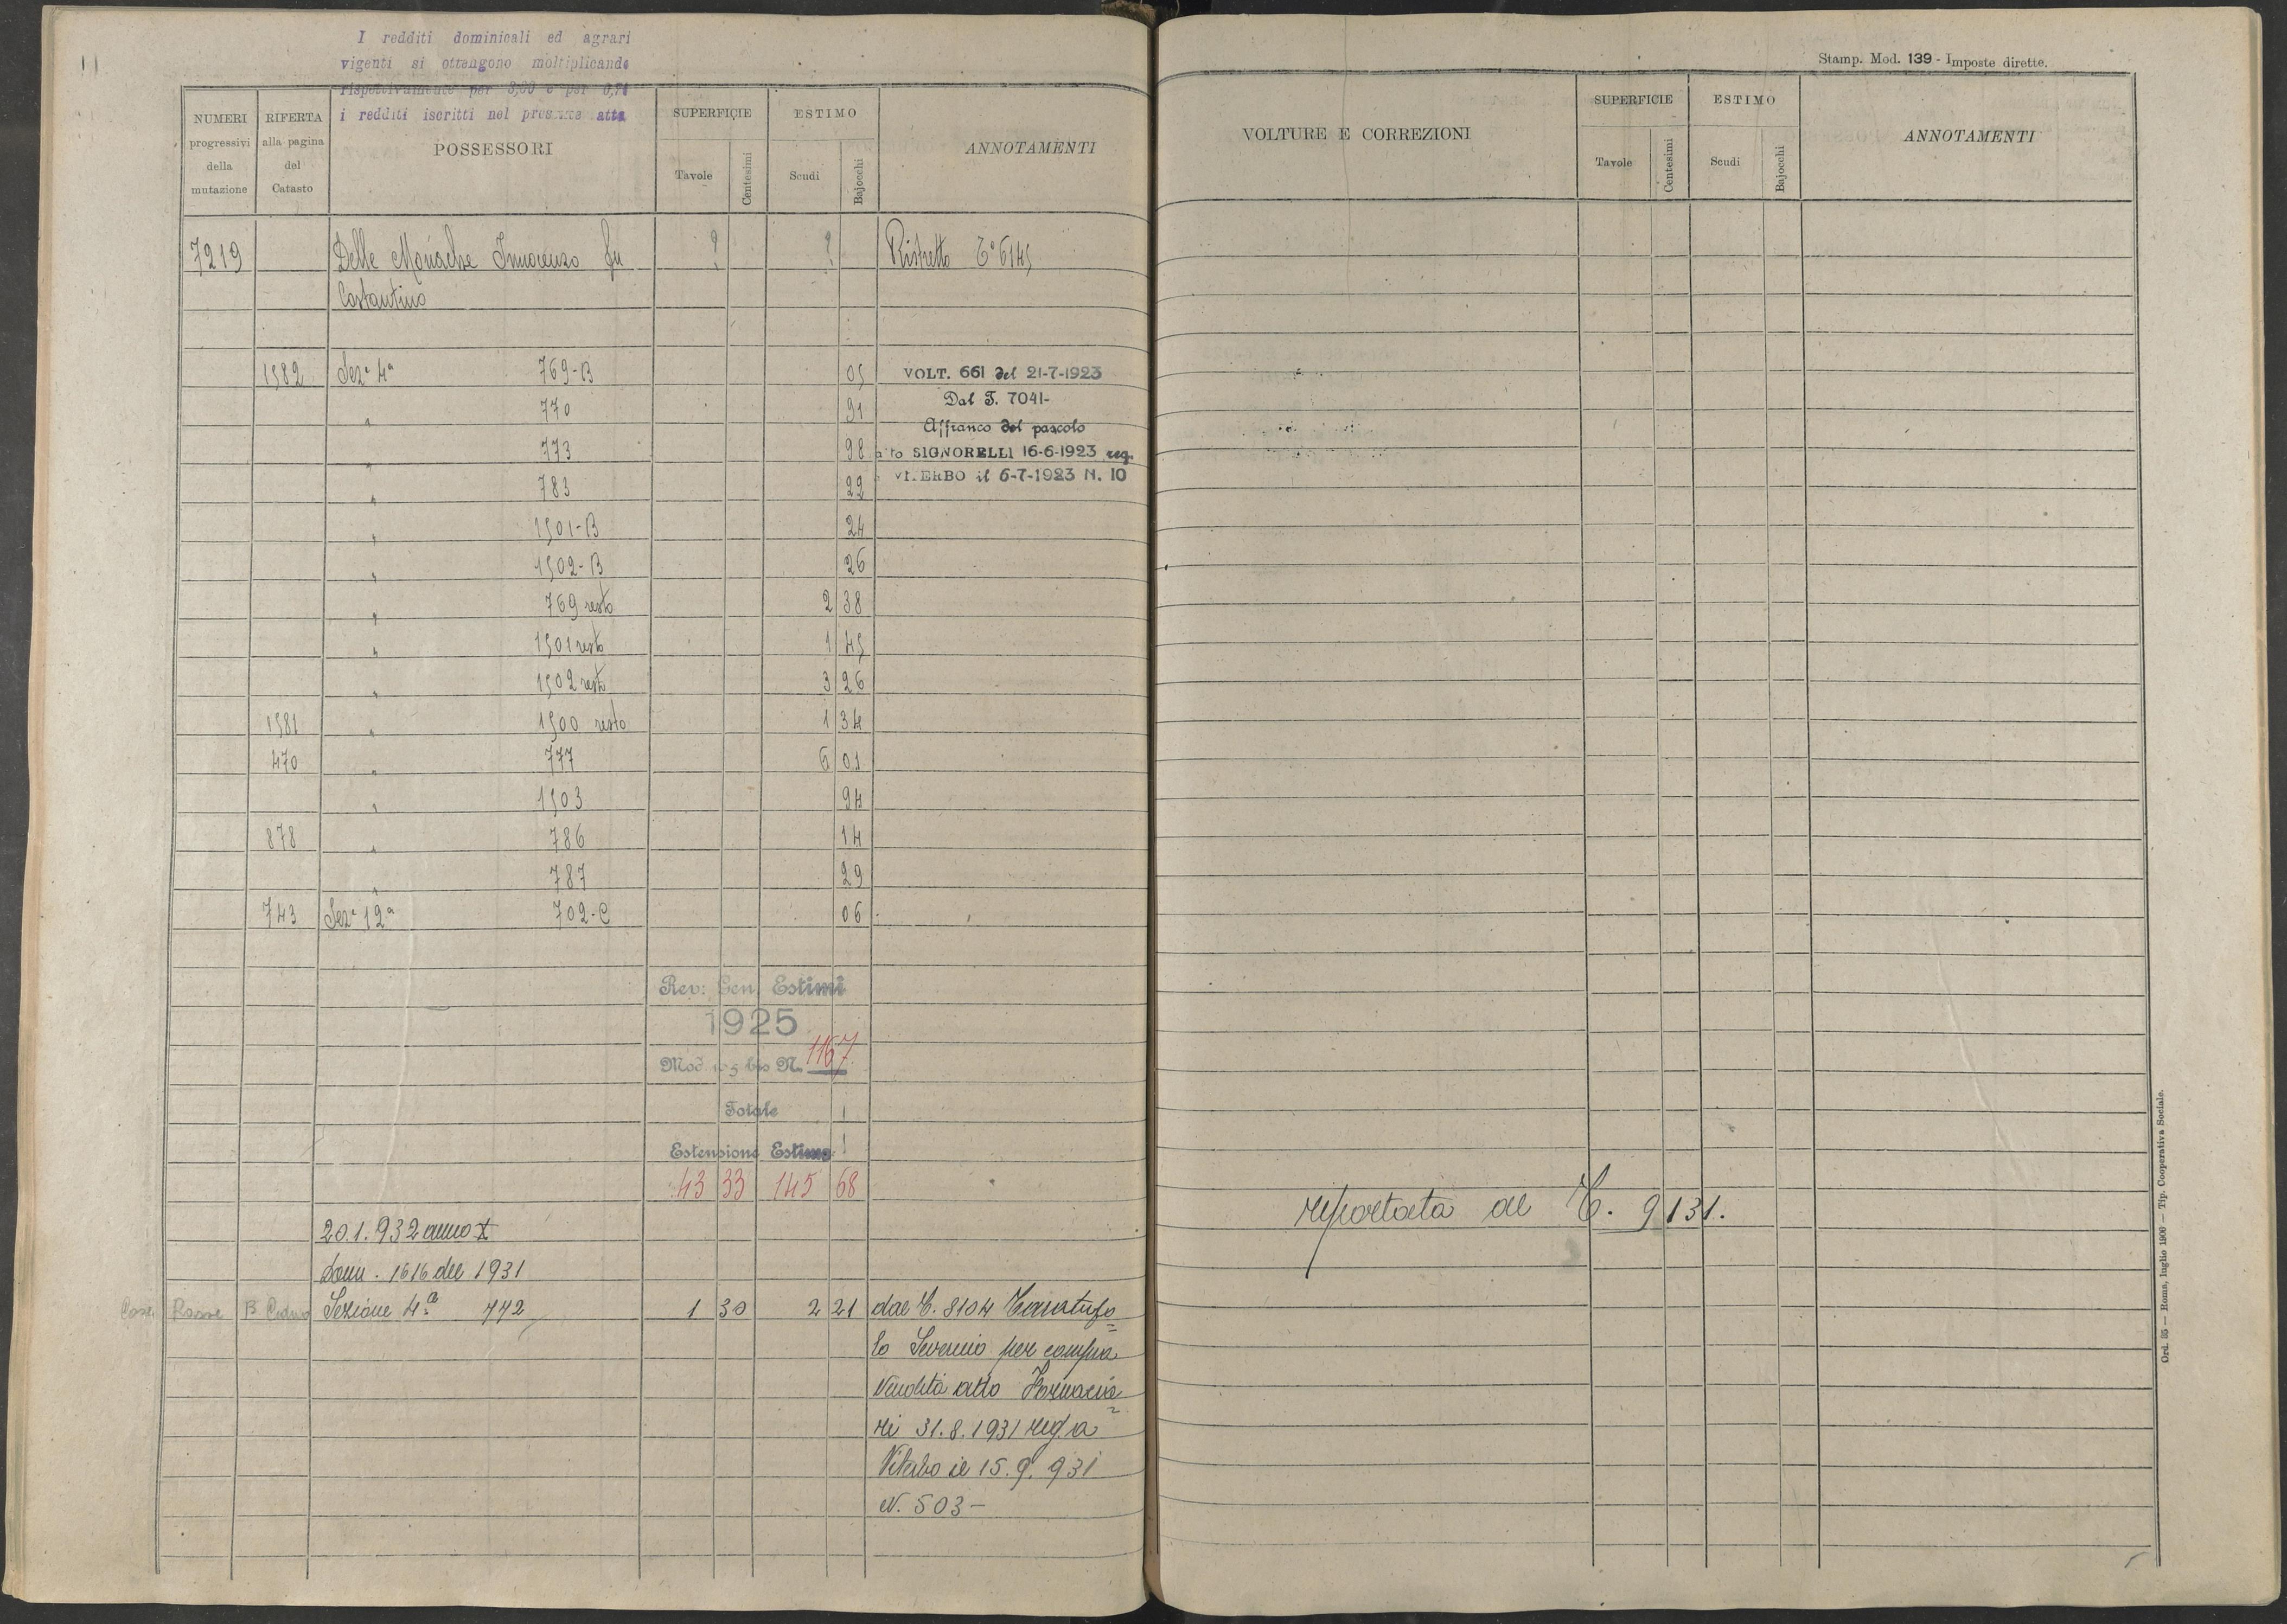 I redditi dominicali ed agrari
vigenti si ottengono moltiplicando
rispettivamente per 3,60 e per 0,71
i redditi iscritti nel presente atto
NUMERI progressivi della mutazione
RIFERTA alla pagina del Catasto
POSSESSORI
SUPERFICIE
Tavole
Centesimi
ESTIMO
Scudi
Bajocchi
ANNOTAMENTI
7219 Delle Monache Innocenzo fu ? ? Ristretto T° 6145
Costantino
1582 Sezᵉ 4ᵃ 769-B 05 VOLT. 661 del 21-7-1923
" 770 91 Dal T. 7041-
Affranco del pascolo
" 773 98 atto SIGNORELLI 16-6-1923 reg.
" 783 22 VITERBO il 6-7-1923 N. 10
" 1501-B 24
" 1502-B 26
" 769 resto 2 38
" 1501 resto 1 45
" 1502 resto 3 26
1581 " 1500 resto 1 34
470 " 777 6 01
" 1503 94
878 " 786 14
" 787 29
743 Sezᵉ 12ᵃ 702-C 06
Rev: Gen. Estimi
1925
Mod. bis N. 1167
Totale
Estensione Estimo
43 33 145 68
20.1.932 anno X
Dom. 1616 del 1931
Rosse B Ceduo Sezione 4ᵃ 772 1 30 2 21 dal T. 8104
lo Severino per compra
vendita atto Fornacia=
ri 31.8.1931 reg. a
Viterbo il 15.9.931
N. 503-
Stamp. Mod. 139 - Imposte dirette.
VOLTURE E CORREZIONI
SUPERFICIE
Tavole
Centesimi
ESTIMO
Scudi
Bajocchi
ANNOTAMENTI
riportata al T. 9131.
Ord. 35 — Roma, luglio 1900 — Tip. Cooperativa Sociale.